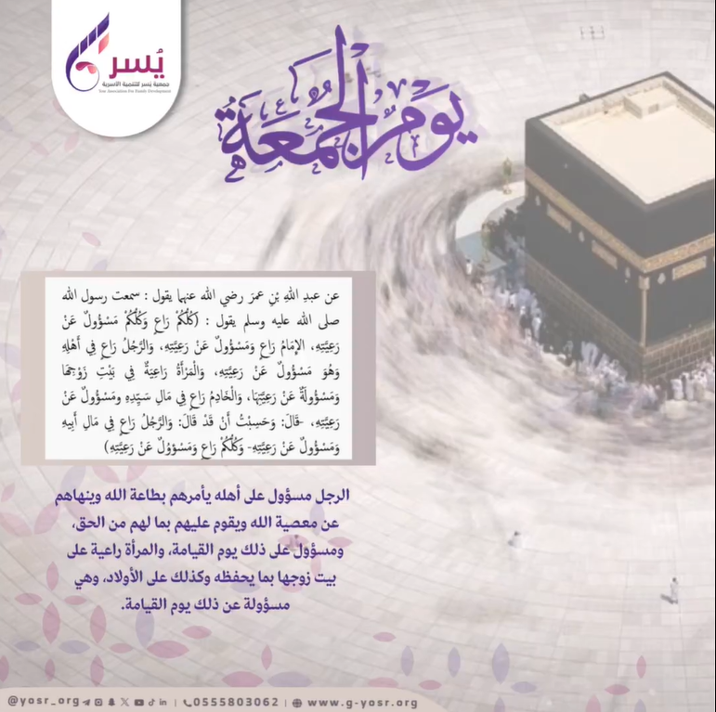 يُسر
جمعية يُسر للتنمية الأسرية
Yosr Association for Family Development
يَومُ الجُمُعَة
عن عبدِ اللهِ بْنِ عمرَ رضي الله عنهما يقول : سمعت رسول الله
صلى الله عليه وسلم يقول : (كُلُّكُمْ رَاعٍ وَكُلُّكُمْ مَسْؤُولٌ عَنْ
رَعِيَّتِهِ، الإِمَامُ رَاعٍ وَمَسْؤُولٌ عَنْ رَعِيَّتِهِ، وَالرَّجُلُ رَاعٍ فِي أَهْلِهِ
وَهُوَ مَسْؤُولٌ عَنْ رَعِيَّتِهِ، وَالْمَرْأَةُ رَاعِيَةٌ فِي بَيْتِ زَوْجِهَا
وَمَسْؤُولَةٌ عَنْ رَعِيَّتِهَا، وَالْخَادِمُ رَاعٍ فِي مَالِ سَيِّدِهِ ومَسْؤُولٌ عَنْ
رَعِيَّتِهِ، -قَالَ: وَحَسِبْتُ أَنْ قَدْ قَالَ: وَالرَّجُلُ رَاعٍ فِي مَالِ أَبِيهِ
وَمَسْؤُولٌ عَنْ رَعِيَّتِهِ- وَكُلُّكُمْ رَاعٍ وَمَسْؤوُلٌ عَنْ رَعِيَّتِهِ)
الرجل مسؤول على أهله يأمرهم بطاعة الله وينهاهم
عن معصية الله ويقوم عليهم بما لهم من الحق،
ومسؤول على ذلك يوم القيامة، والمرأة راعية على
بيت زوجها بما يحفظه وكذلك على الأولاد، وهي
مسؤولة عن ذلك يوم القيامة.
@yosr_org | 0555803062 | www.g-yosr.org